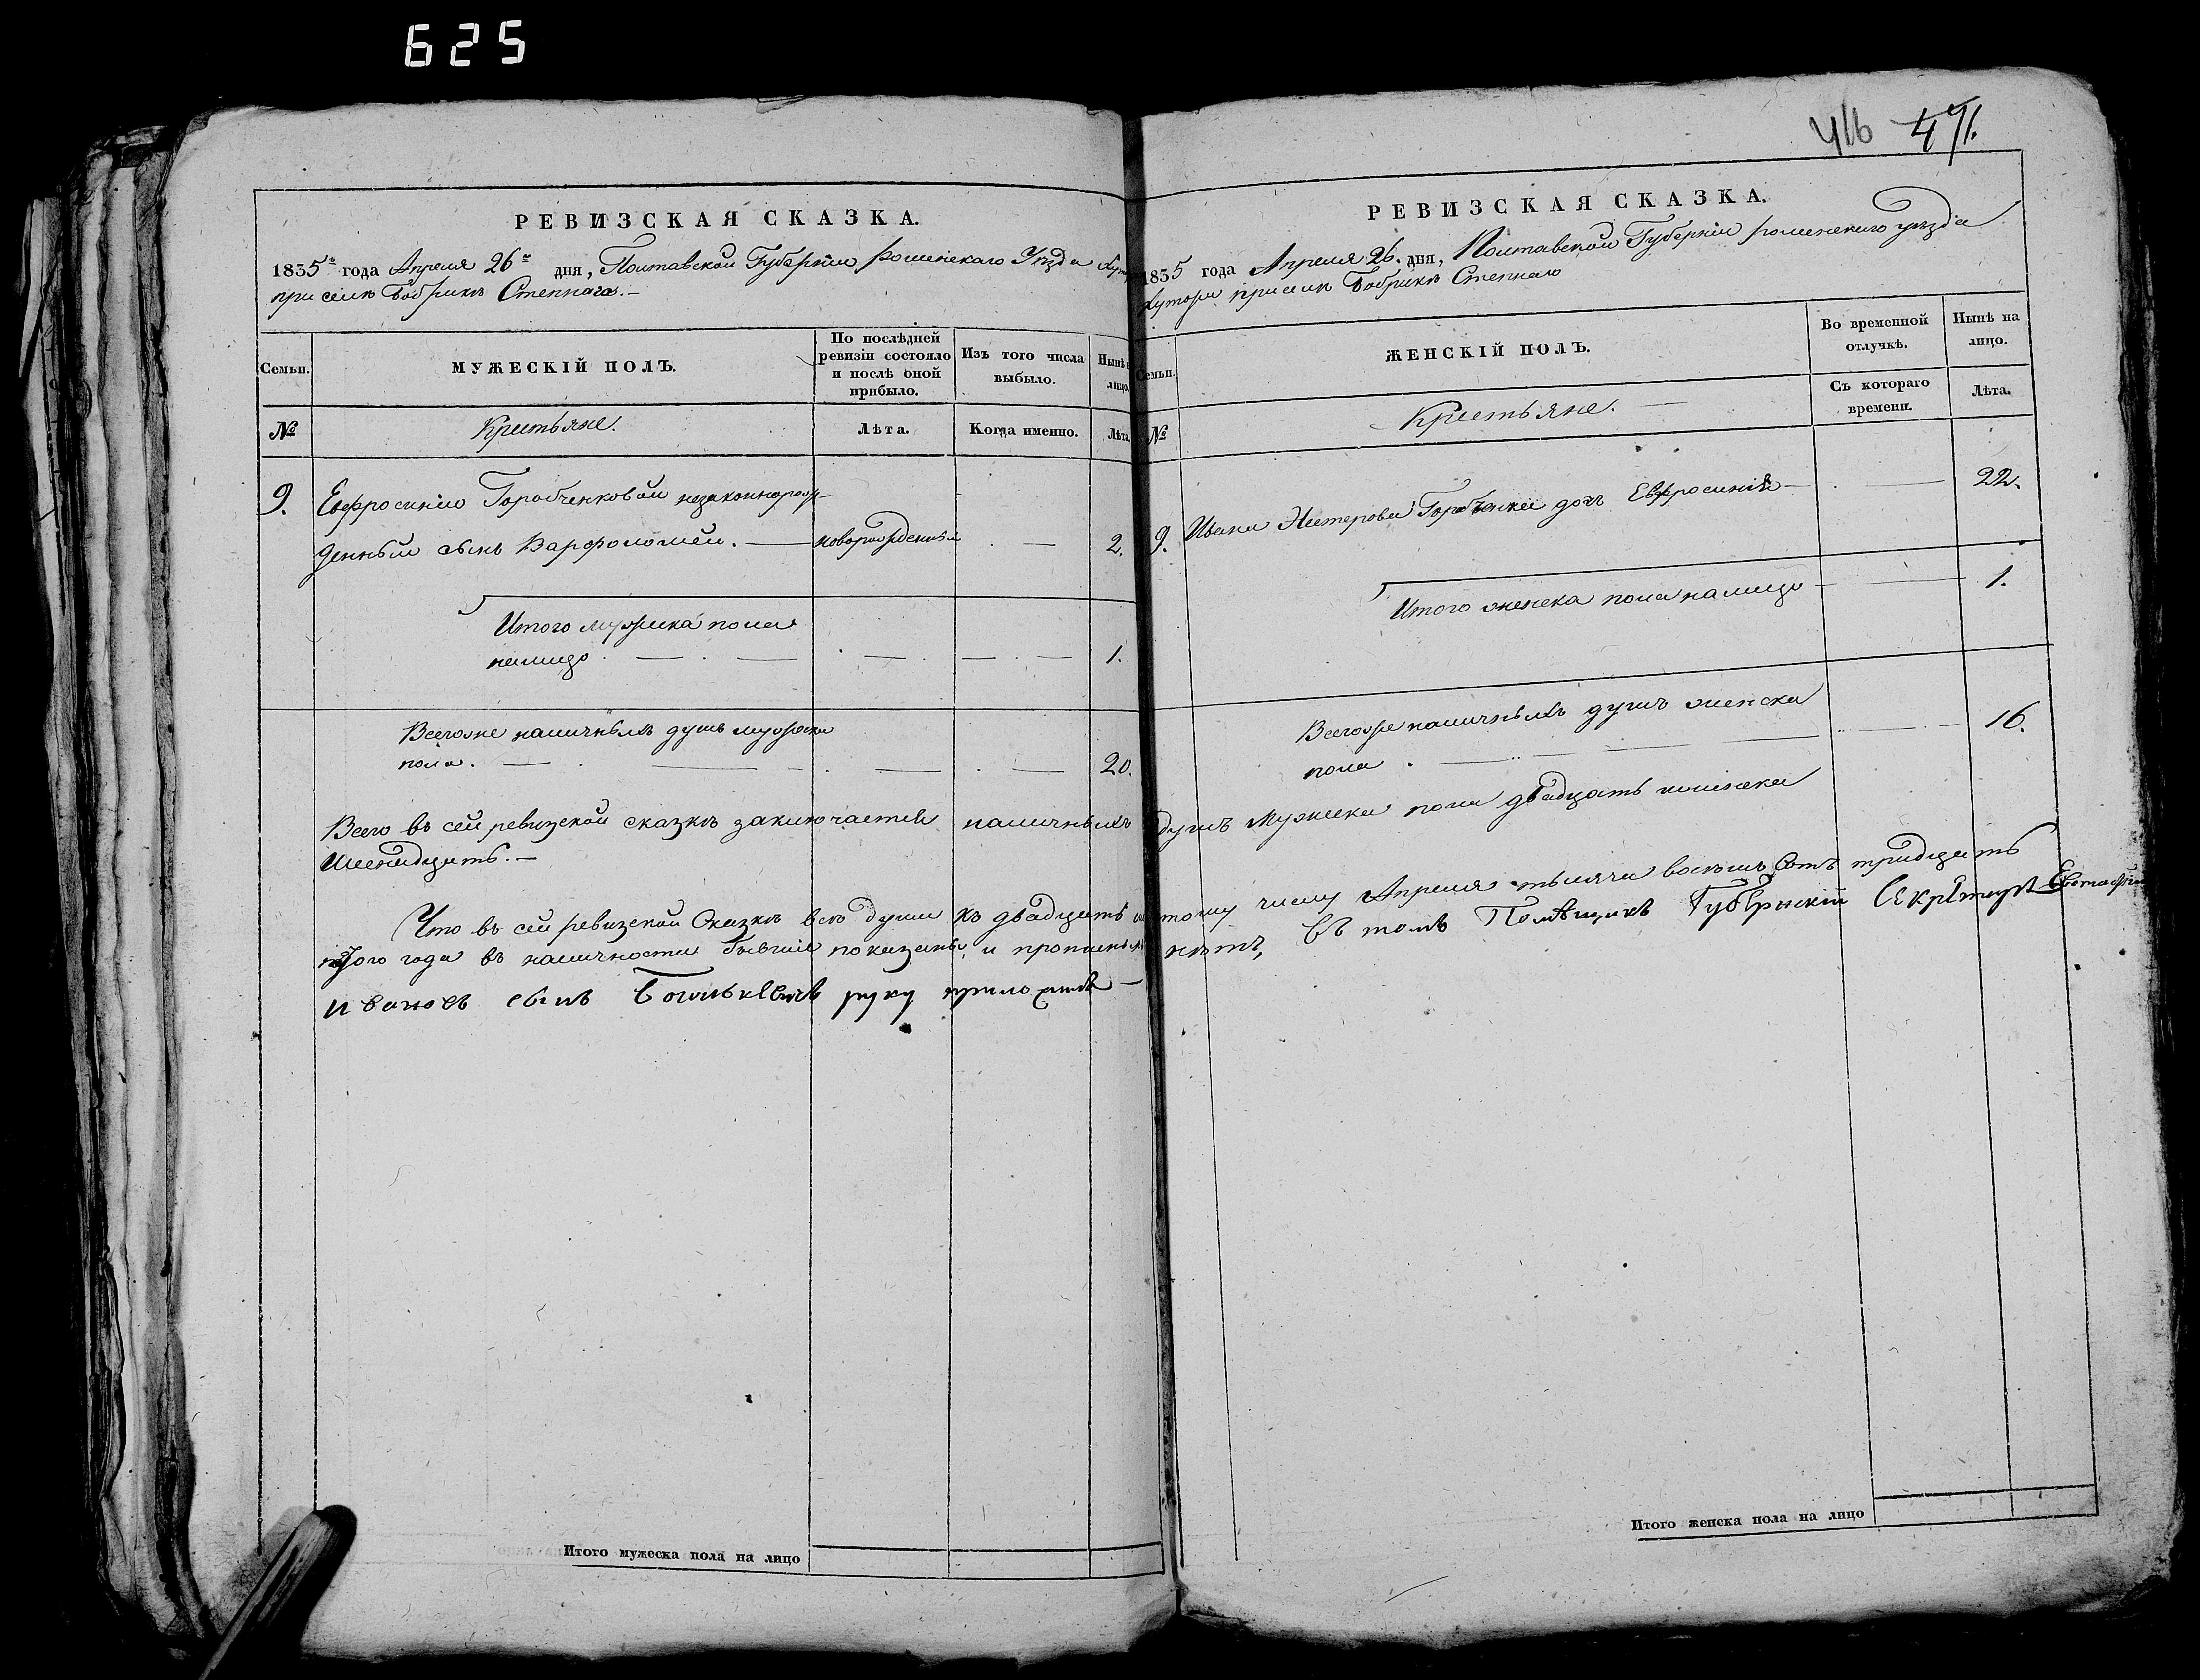 625
416 491.
РЕВИЗСКАЯ СКАЗКА.
1835го года Апреля 26го дня, Полтавской Губерніи Роменскаго Уѣзда
при селѣ Бобрикѣ Степнаго.—
Семьи.
МУЖЕСКІЙ ПОЛЪ.
По послѣдней ревизіи состояло и послѣ оной прибыло.
Изъ того числа выбыло.
Нынѣ
лицо.
№
Крестьяне.
Лѣта.
Когда именно.
Лѣта.
9. Евфросиніи Горобченковой незаконнорож-
денный сынъ Варфоломей. — новорожденный — 2.
Итого мужеска пола
налицо — 1.
Всегоже наличныхъ душъ мужеска
пола. — 20.
РЕВИЗСКАЯ СКАЗКА.
1835 года Апреля 26. дня, Полтавской Губерніи роменскаго уѣзда
хутора при селѣ Бобрикѣ Степнаго
Семьи.
ЖЕНСКІЙ ПОЛЪ.
Во временной отлучкѣ.
Нынѣ на лицо.
№
Крестьяне.
Съ котораго времени.
Лѣта.
9. Ивана Нестерова дочь Евфросинія — 22.
Итого женска пола налицо — 1.
Всегоже наличныхъ душъ женска
пола — 16.
Всего въ сей ревизской сказкѣ заключается наличныхъ душъ мужеска пола двадцать женска
Шеснадцать.—
Что въ сей ревизской Сказкѣ всѣ души къ двадцать шестому числу Апреля тысяча восемь сотъ тридцать
пятого года въ наличности бывшіе показаны, и прописныхъ нѣтъ, въ томъ Помѣщикъ Губернскій Секретарь
Ивановъ сынъ руку приложилъ —
Итого мужеска пола на лицо
Итого женска пола на лицо